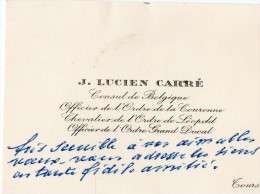 J. LUCIEN CARRÉ
Consul de Belgique
Officier de l'Ordre de la Couronne
Chevalier de l'Ordre de Léopold
Officier de l'Ordre Grand Ducal
très sensible à vos aimables
vœux vous adresse les siens
en toute fidèle amitié.
Tours